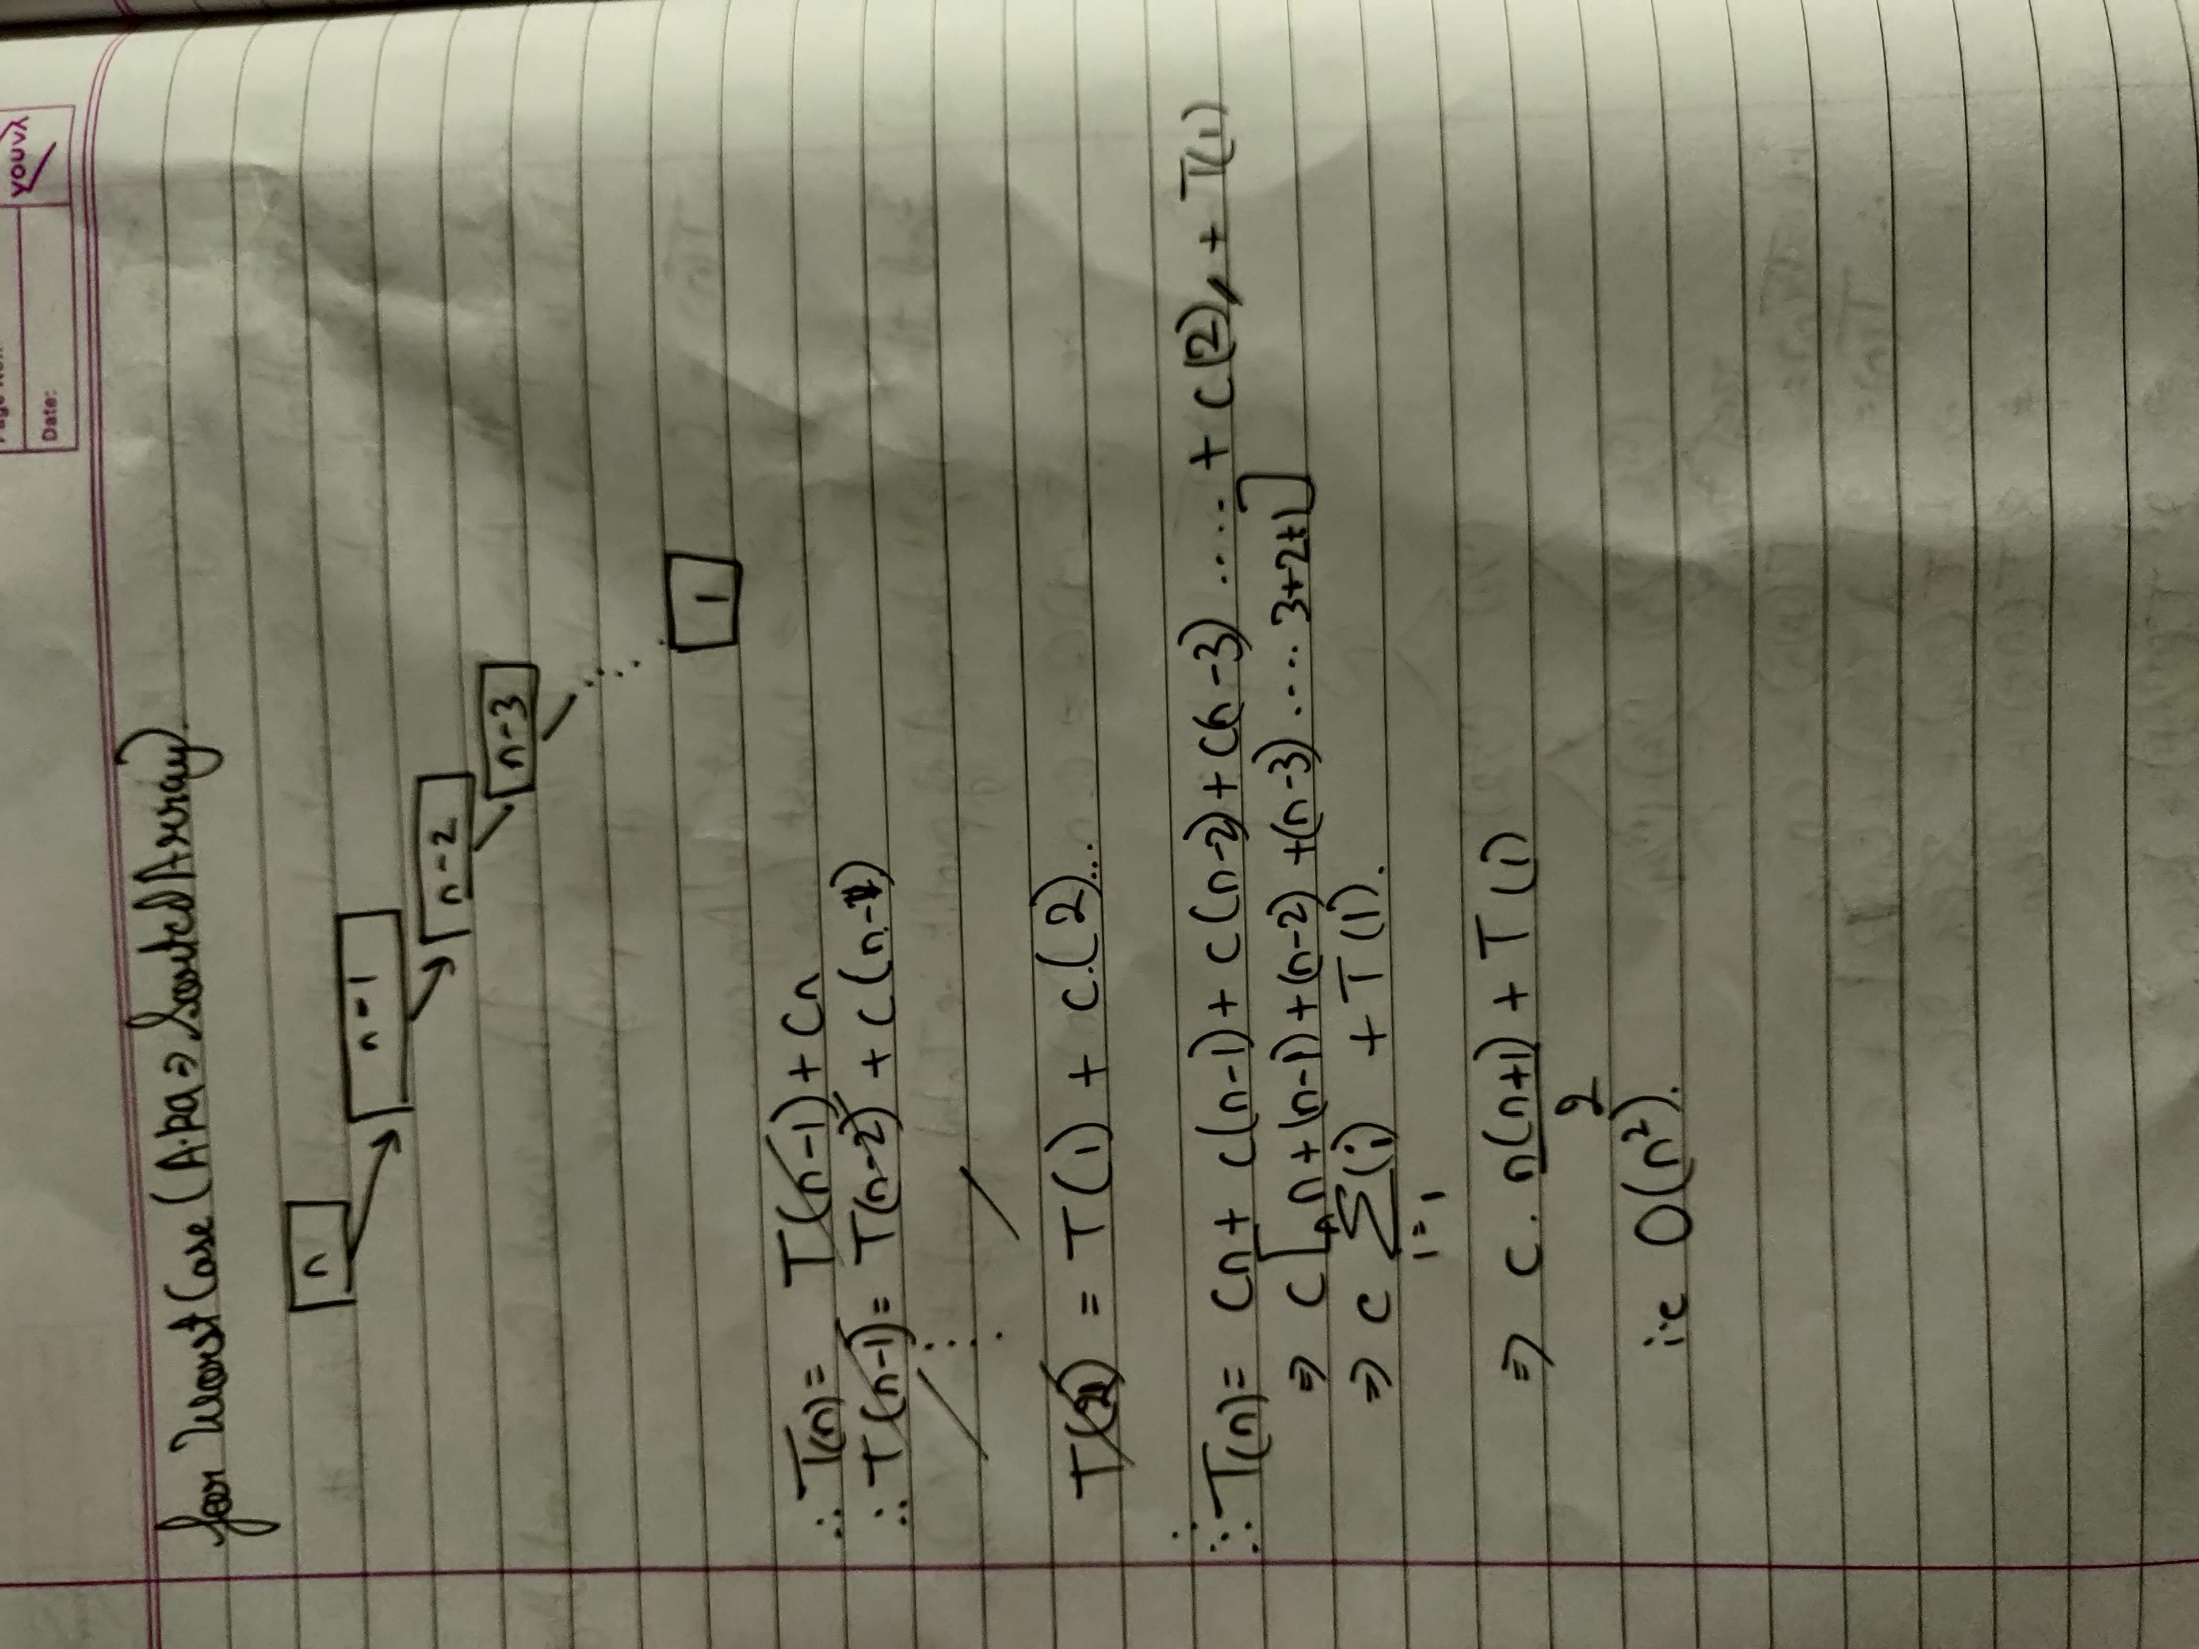 Date:
YOUVA
for Worst Case (A.Ka ⇒ Sorted Array)
n
n-1
n-2
n-3
1
∴ T(n) = T(n-1) + Cn
∴ T(n-1) = T(n-2) + C(n-1)
T(2) = T(1) + C.(2)...
∴ T(n) = Cn + C(n-1) + C(n-2) + C(n-3) ..... + C(2) + T(1)
⇒ C [n + (n-1) + (n-2) + (n-3) ..... 3+2+1]
⇒ C n∑i=1 (i) + T(1).
⇒ C. n(n+1)/2 + T(1)
i.e O(n²).